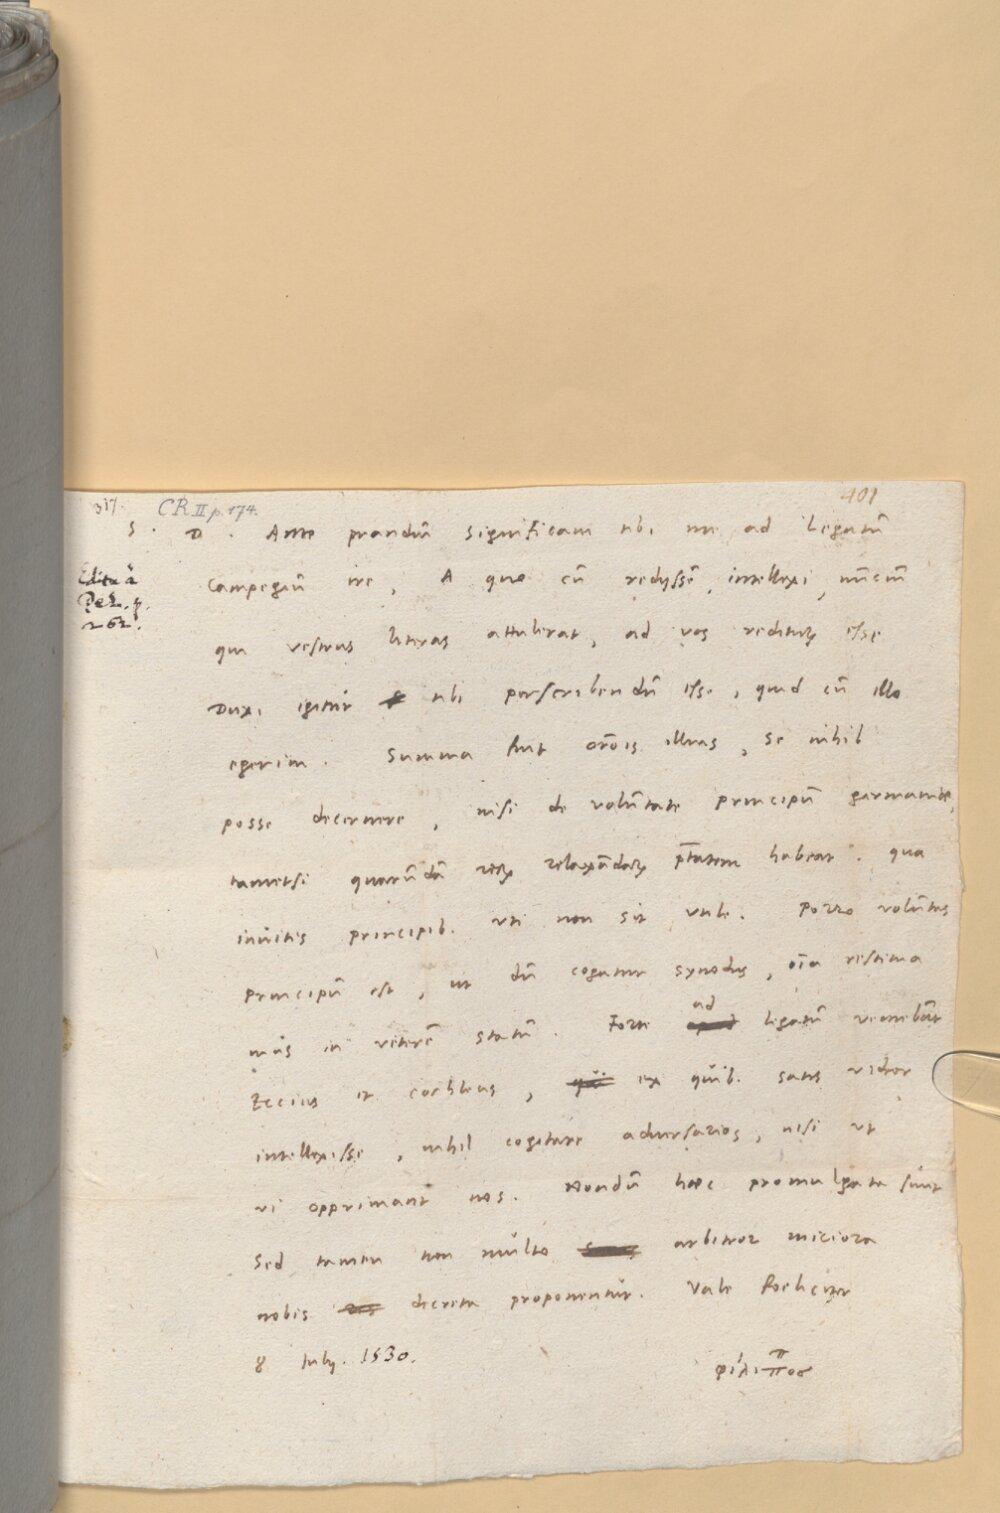 317.
CR II p. 174.
401
S. D. Ante prandiū significavi tibi me ad Legatū
Campegiū ire, A quo cū redijssē, intellexi, nūciū
qui vestras literas attulerat, ad vos rediturū esse
Duxi igitur tibi perscribendū esse, quid cū illo
egerim. Summa fuit orōis illius, se nihil
posse decernere, nisi de volūtate principū germaniae,
tametsi quarūdā rerū relaxādarū ptātem habeat. qua
invitis principib. uti non sit utile. Porro volūtas
principū est, ut dū cogatur synodus, oīa restitua
mus in veterē statū. Forte ad legatū veniebāt
Eccius et cochleus, ex quib. satis videor
intellexisse, nihil cogitare adversarios, nisi ut
vi opprimant nos. Nondū haec promulgata sunt
Sed tamen non multo arbitror miciora
nobis decreta proponentur. Vale foeliciter
8 July. 1530.
φίλιππος
Edita à
Pez. p.
262.